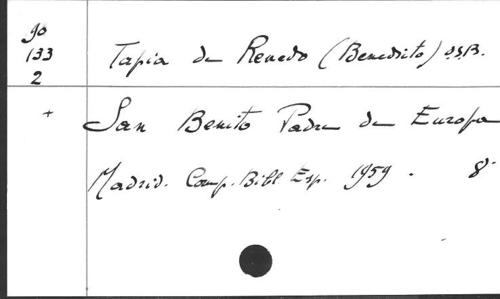 90
133
2
Tapia de Renedo (Benedicto) O.S.B.
+
San Benito Padre de Europa
Madrid. Comp. Bibl Esp. 1959. 8º